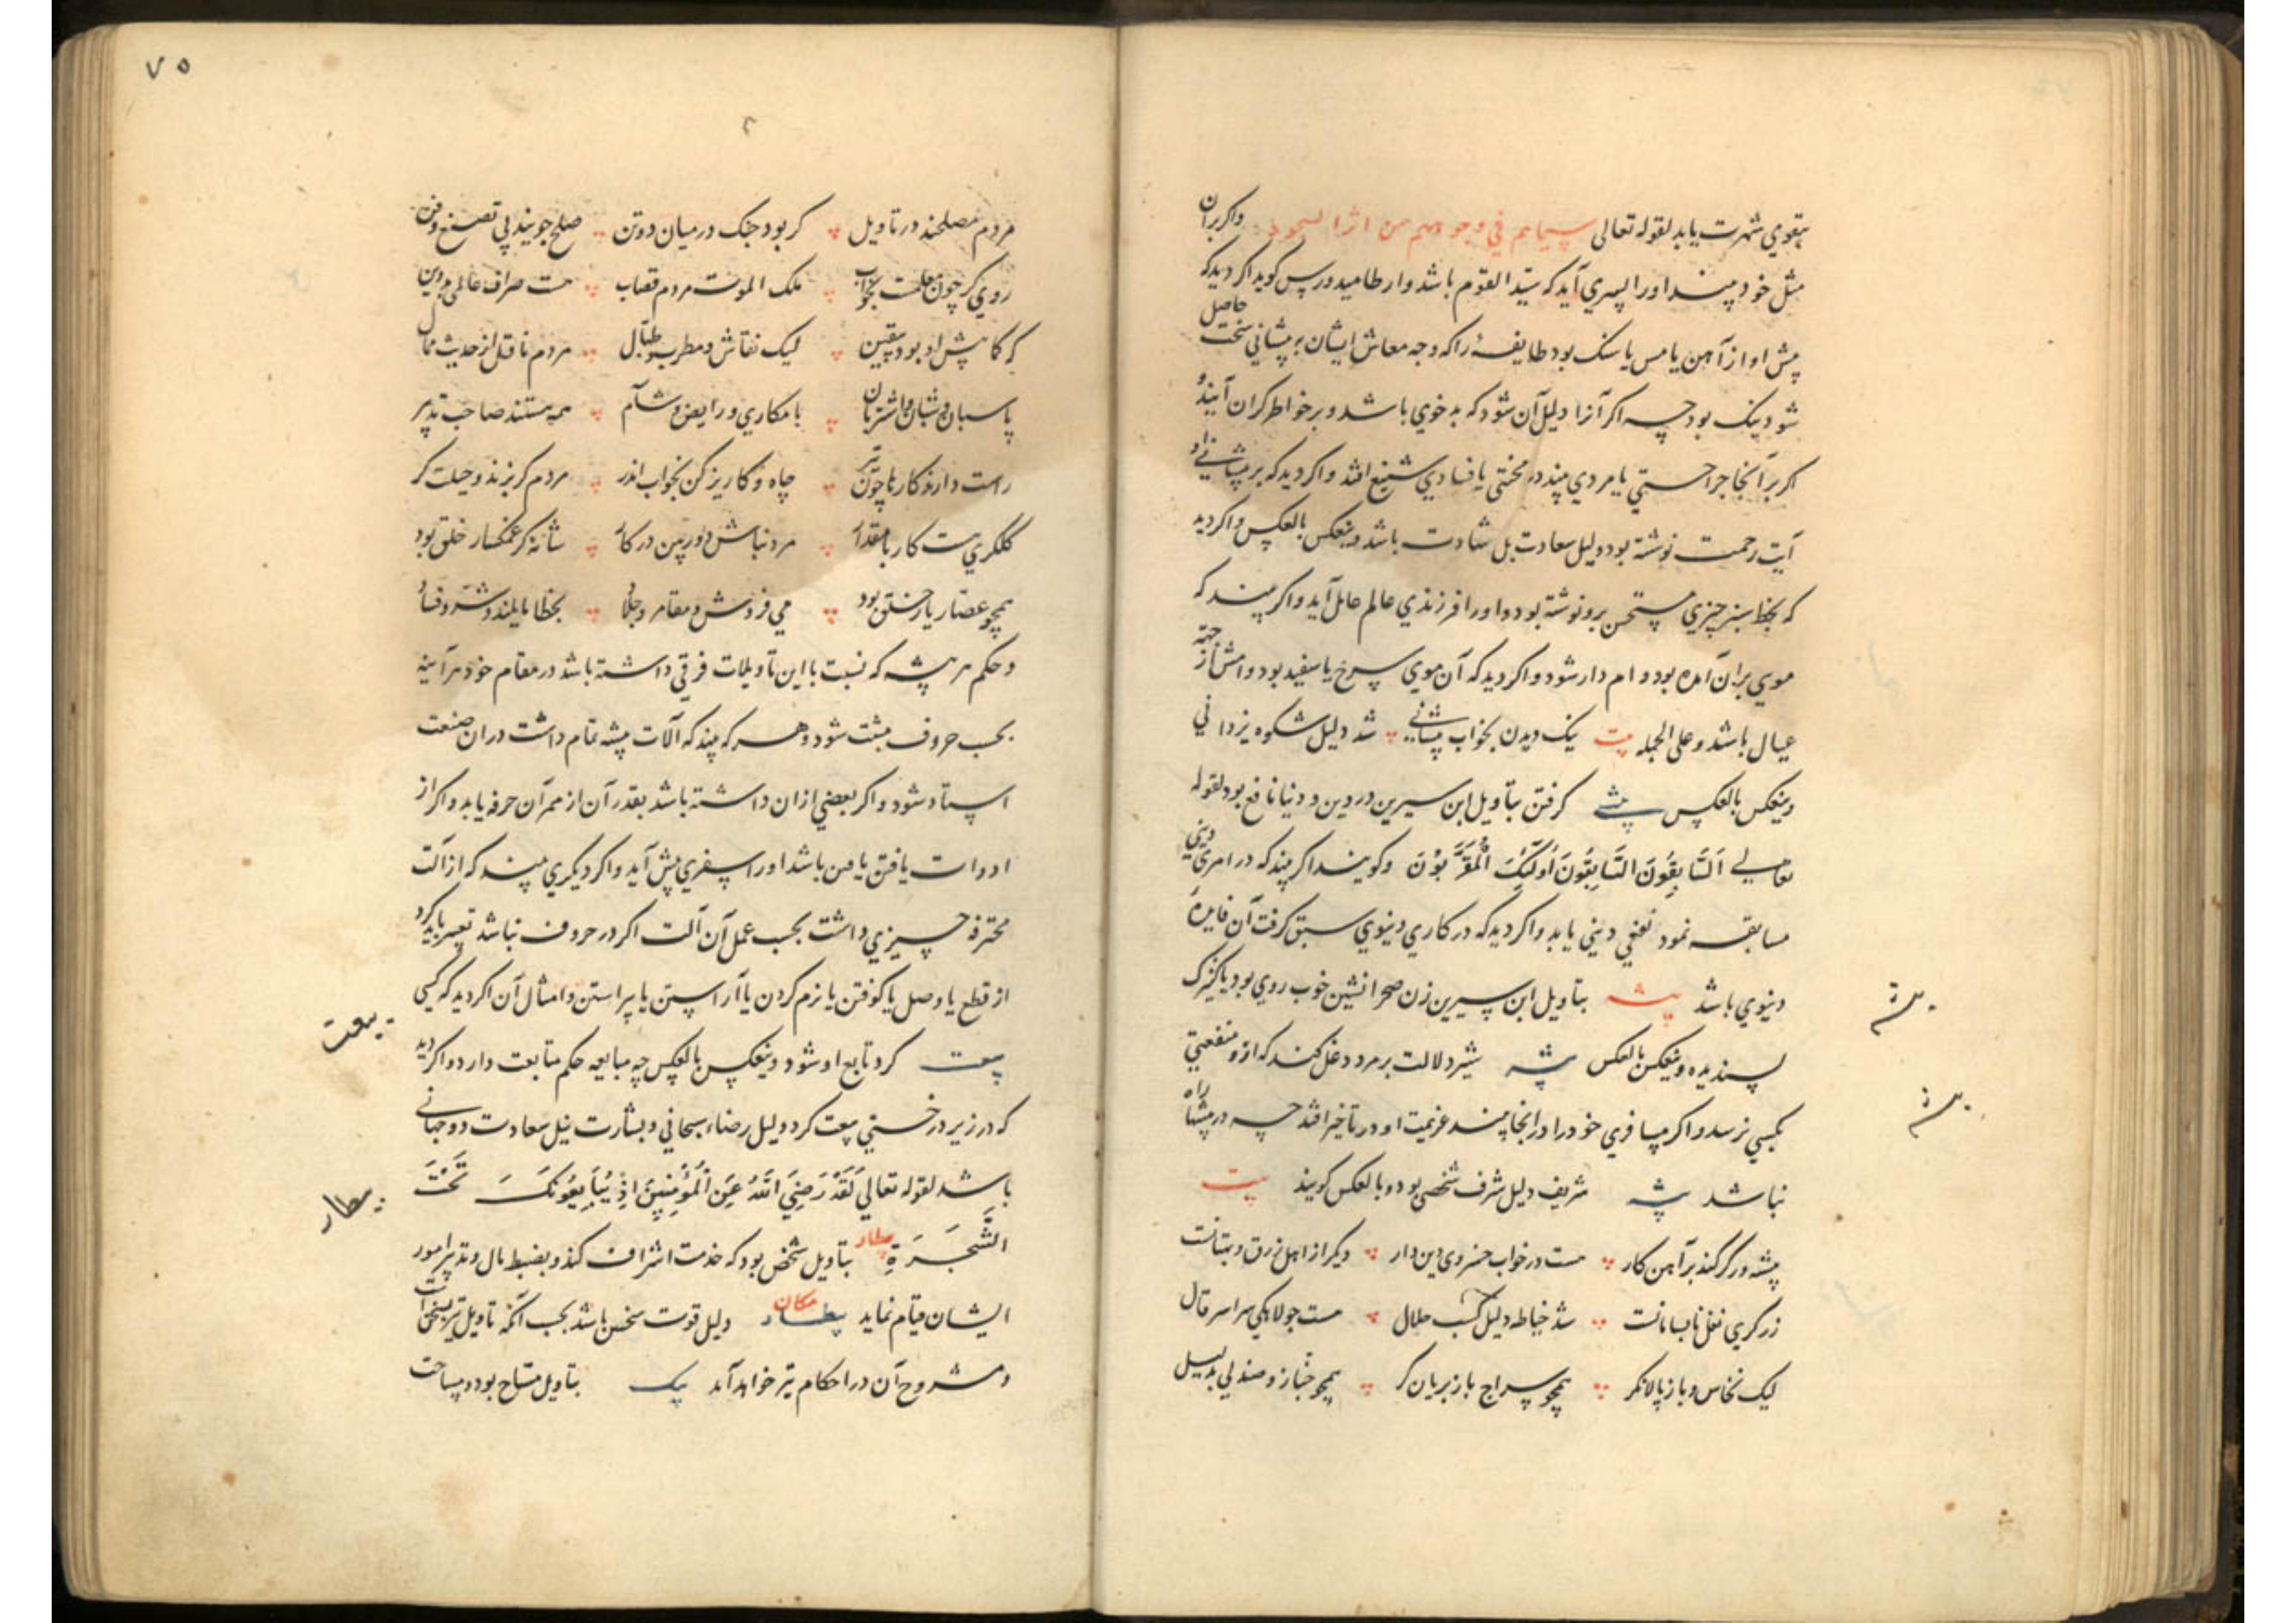 بتقوي شهرت يابد لقوله تعالى سيماهم في وجوههم من اثر السجود واكر بران
مثل خود بيند اورا پسري آيد كه سيد القوم باشد وارطاميدورس كويد اكر ديد كه
پيش او از آهن يا مس يا سنك بود طايفهٔ را كه وجه معاش ايشان به پيشاني سخت حاصل
شود نيك بود چه اكر آنرا دليل آن شود كه بدخوي باشد و برخواطر كران آيند و
اكر بر آنجا جراحتي يا مردي بيند در محنتي يا فسادي شنيع افتد واكر ديد كه بر پيشاني او
آيت رحمت نوشته بود دليل سعادت بل شهادت باشد وينعكس بالعكس واكر ديد
كه بخط سبز چيزي مستحسن برو نوشته بود و اورا فرزندي عالم عامل آيد واكر بيند كه
موي بران آمده بود وام دار شود واكر ديد كه آن موي سرخ يا سفيد بود وامش از جهة
عيال باشد و على الجمله بيت نيك ديدن بخواب پيشاني شد دليل شكوه يزداني
وينعكس بالعكس پيشي كرفتن بتاويل ابن سيرين در دين و دنيا نافع بود لقوله
تعالي اَلسَّابِقُونَ السَّابِقُونَ اُولٰئِكَ الْمُقَرَّبُوْنَ وكويند اكر بيند كه در امري ديني
مسابقه نمود نفعي ديني يابد واكر ديد كه در كاري دنيوي سبق كرفت آن فايدهٔ
دنيوي باشد بيشه بتاويل ابن سيرين زن صحرا نشين خوب روي بود يا كنيزك
پسنديده وينعكس بالعكس پشه شير دلالت بر مرد دغل كند كه ازو منفعتي
بكسي نرسد واكر مسافري خود را در انجا بيند عزيمت او در تاخير افتد چه در بيشها راه
نباشد پيشه شريف دليل شرف شخص بود و بالعكس كويند بيت
پيشه ور كر كند بر آهن كار هست در خواب خسروي دين دار ديكر از اهل زرق و بهتانست
زركري نغل نابسامانست شد خياطه دليل كسب حلال هست جولاهكي سراسر قال
ليك نخاس و باز پالانكر همچو سراج باز بريان كر همچو خباز و صندلي بدليل
٧٥
مردم مصلحند در تاويل كر بود جنك در ميان دوتن صلح جويند بي تصنع و فن
روي كر چون معلمست بخواب ملك الموت مردم قصاب هست صراف عالمي بي دين
كه كمابيش او بود بيقين ليك نقاش و مطرب و طبال مردم ناقل از حديث محال
پاسبان و شبان و اشتربان با مكاري و رايض و شآم همه هستند صاحب تدبير
راست دارند كارها چون تير چاه و كاريز كن بخواب اندر مردم كربزند و حيلت كر
كلكري هست كار با مقدار مرد نباش دوربين در كار شانه كر غمكسار خلق بود
همچو عصار يار خلق بود مي فروش و مقامر و جلاد بخطا مايلند و شر و فساد
و حكم هر پيشه كه نسبت با اين تاويلات فرقي داشته باشد در مقام خود هر آينه
بحسب حروف مثبت شود و هر كه بيند كه آلات پيشه تمام داشت در ان صنعت
استاد شود و اكر بعضي ازان داشته باشد بقدر آن از ممر آن حرفه يابد واكر از
ادوات يافتن يا من باشد اورا سفري پيش آيد واكر ديكري بيند كه از آلت
محترفه چيزي داشت بحسب عمل آن آلت اكر در حروف نباشد تعبير بايد كرد
از قطع يا وصل يا كوفتن يا نرم كردن يا آراستن يا پيراستن و امثال آن اكر ديد كه كسي
بيعت كرد تابع او شود وينعكس بالعكس چه مبايعه حكم متابعت دارد واكر ديد
كه در زير درختي بيعت كرد دليل رضاء سبحاني و بشارت نيل سعادت دو جهاني
باشد لقوله تعالي لَقَدْ رَضِيَ اللّٰهُ عَنِ الْمُؤْمِنِيْنَ اِذْ يُبَايِعُونَكَ تَحْتَ
الشَّجَرَةِ بيطار بتاويل شخصي بود كه خدمت اشراف كند و بضبط مال و تدبير امور
ايشان قيام نمايد دليل قوت سخن باشد بحسب آنكه تاويل
و مشروح آن در احكام تير خواهد آمد پيك بتاويل مساح بود و مساحت
بيعت
بيطار
بيشه